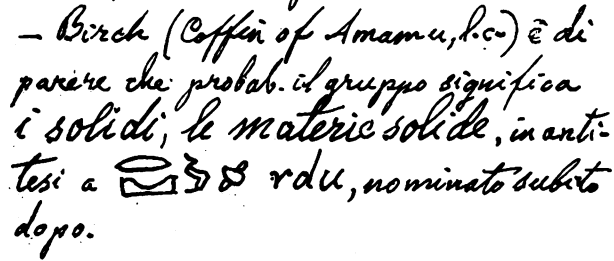 — Birch (Coffin of Amamu, l. c.) è di
parere che probab. il gruppo significa
i solidi, le materie solide, in anti-
tesi a rdu, nominato subito
dopo.